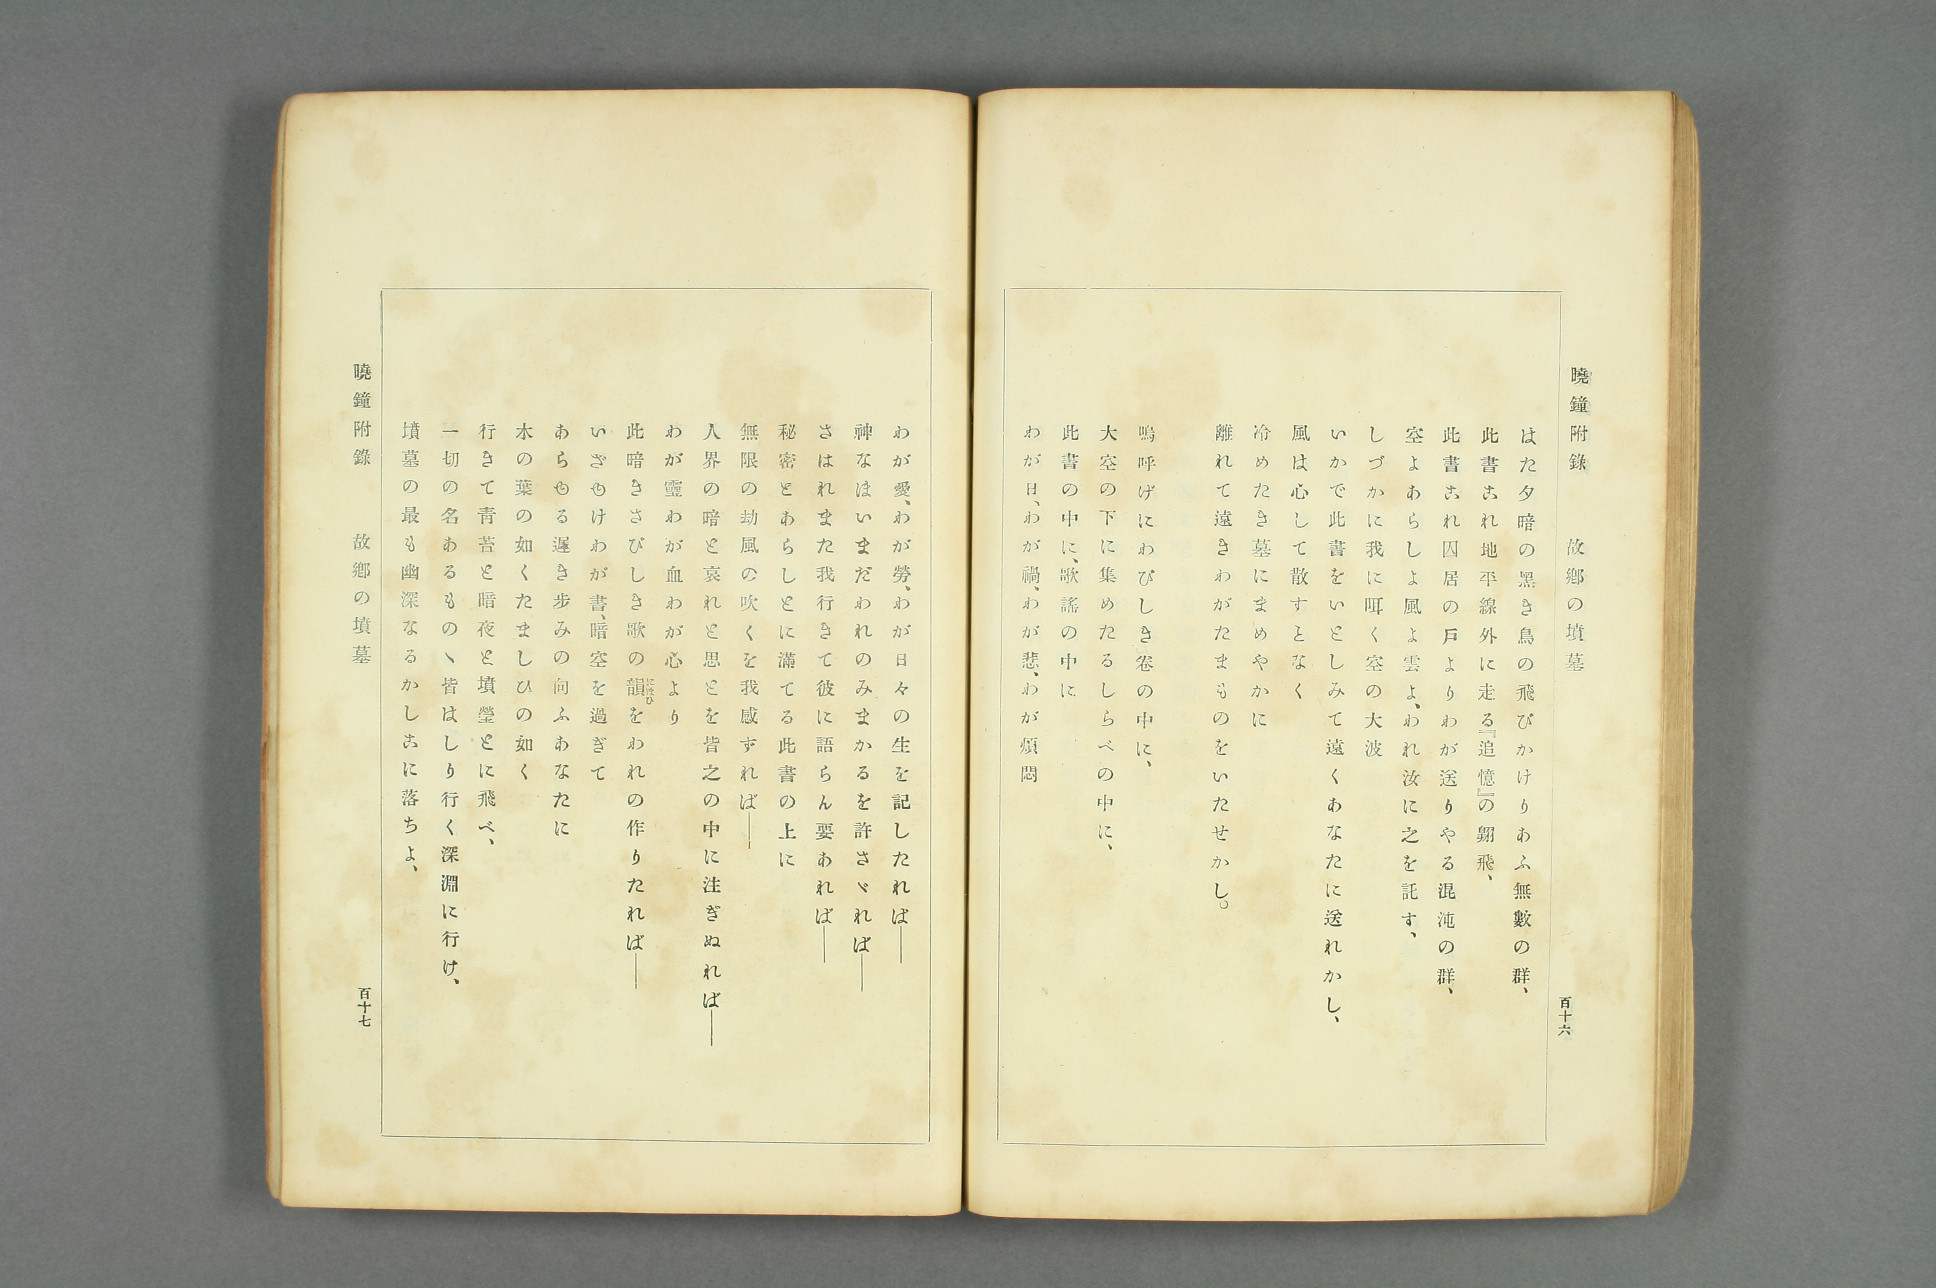 曉鐘附錄　故鄕の墳墓
はた夕暗の黑き鳥の飛びかけりあふ無數の群、
此書これ地平線外に走る『追憶』の翺飛、
此書これ囚居の戸よりわが送りやる混沌の群、
空よあらしよ風よ雲よ、われ汝に之を託す、
しづかに我に咡く空の大波
いかで此書をいとしみて遠くあなたに送れかし、
風は心して散すとなく
冷めたき墓にまめやかに
離れて遠きわがたまものをいたせかし。
嗚呼げにわびしき卷の中に、
大空の下に集めたるしらべの中に、
此書の中に、歌謠の中に
わが日、わが禍、わが悲、わが煩悶
百十六
わが愛、わが勞、わが日々の生を記したれば―
神なほいまだわれのみまかるを許さゞれば―
さはれまた我行きて彼に語らん要あれば―
秘密とあらしとに滿てる此書の上に
無限の劫風の吹くを我感ずれば―
人界の暗と哀れと思とを皆之の中に注ぎぬれば―
わが靈わが血わが心より
此暗きさびしき歌の韻をわれの作りたれば―
にほひ
いざゆけわが書、暗空を過ぎて
あらゆる遲き歩みの向ふあなたに
木の葉の如くたましひの如く
行きて靑苔と暗夜と墳塋とに飛べ、
一切の名あるものゝ皆はしり行く深淵に行け、
墳墓の最も幽深なるかしこに落ちよ、
曉鐘附錄　故鄕の墳墓
百十七